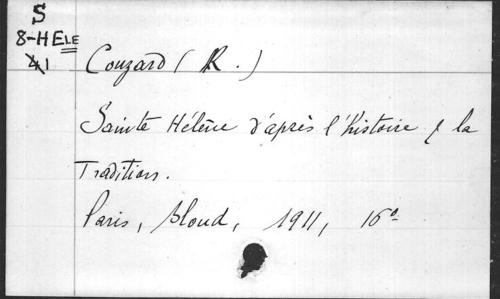 S
8-HELE
41
Couzard (R.)
Sainte Hélène d'après l'histoire & la
Tradition.
Paris, Bloud, 1911, 16º